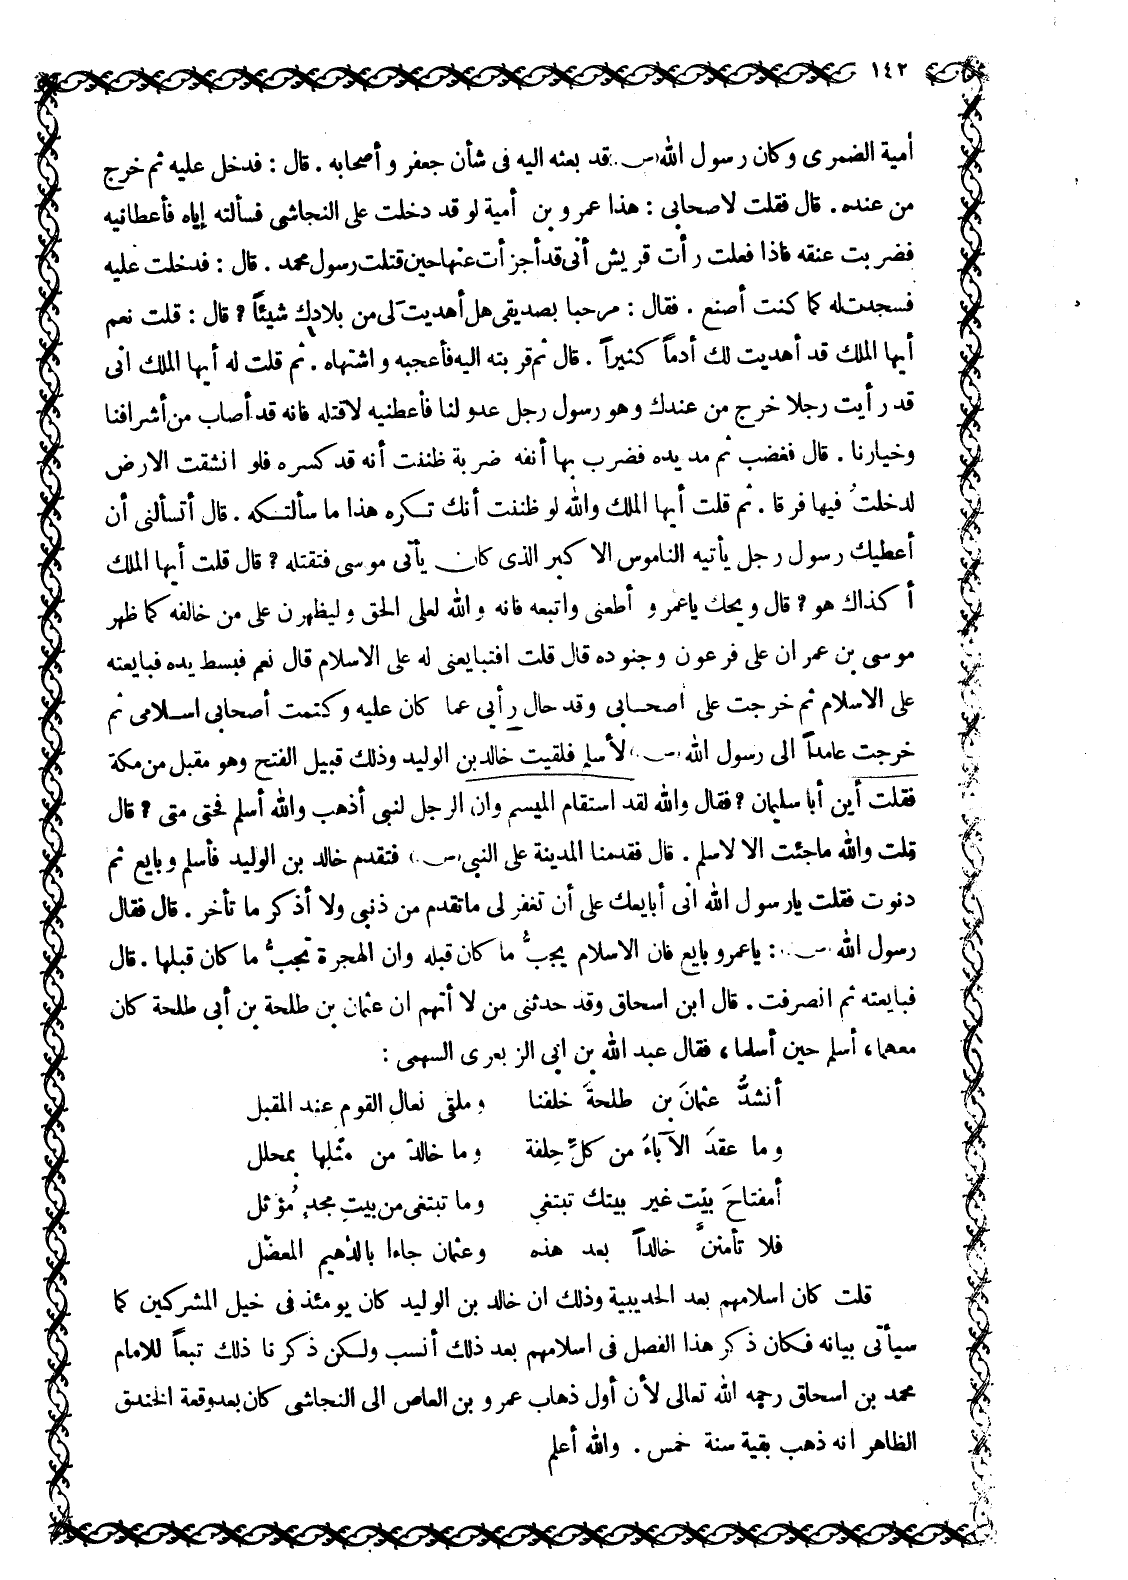 ١٤٢
أمية الضمرى وكان رسول الله (ص) قد بعثه اليه فى شأن جعفر و أصحابه . قال : فدخل عليه ثم خرج
من عنده . قال فقلت لاصحابي : هذا عمرو بن أمية لو قد دخلت على النجاشى فسألته إياه فأعطانيه
فضربت عنقه فاذا فعلت رأت قريش أنى قد أجزأت عنها حين قتلت رسول محمد . قال : فدخلت عليه
فسجدت له كما كنت أصنع . فقال : مرحبا بصديقى هل أهديت لى من بلادك شيئاً ؟ قال : قلت نعم
أيها الملك قد أهديت لك أدماً كثيراً . قال ثم قربته اليه فأعجبه واشتهاه . ثم قلت له أيها الملك انى
قد رأيت رجلا خرج من عندك وهو رسول رجل عدو لنا فأعطنيه لاقتله فانه قد أصاب من أشرافنا
وخيارنا . قال فغضب ثم مد يده فضرب بها أنفه ضربة ظننت أنه قد كسره فلو انشقت الارض
لدخلتُ فيها فرقا . ثم قلت أيها الملك والله لو ظننت أنك تكره هذا ما سألتكه . قال أتسألنى أن
أعطيك رسول رجل يأتيه الناموس الاكبر الذى كان يأتى موسى فتقتله ؟ قال قلت أيها الملك
أكذاك هو ؟ قال ويحك ياعمرو أطعنى واتبعه فانه والله لعلى الحق وليظهرن على من خالفه كما ظهر
موسى بن عمران على فرعون وجنوده قال قلت افتبايعنى له على الاسلام قال نعم فبسط يده فبايعته
على الاسلام ثم خرجت على اصحابى وقد حال رأيى عما كان عليه وكتمت أصحابى اسلامى ثم
خرجت عامداً الى رسول الله (ص) لأسلم فلقيت خالد بن الوليد وذلك قبيل الفتح وهو مقبل من مكة
فقلت أين أبا سليمان ؟ فقال والله لقد استقام الميسم وان الرجل لنبى أذهب والله أسلم فحتى متى ؟ قال
قلت والله ماجئت الا لاسلم . قال فقدمنا المدينة على النبى (ص) فتقدم خالد بن الوليد فأسلم وبايع ثم
دنوت فقلت يارسول الله انى أبايعك على أن تغفر لى ماتقدم من ذنبى ولا أذكر ما تأخر . قال فقال
رسول الله (ص) : ياعمرو بايع فان الاسلام يجبُّ ما كان قبله وان الهجرة تجبُّ ما كان قبلها . قال
فبايعته ثم انصرفت . قال ابن اسحاق وقد حدثنى من لا أتهم ان عثمان بن طلحة بن أبى طلحة كان
معهما، أسلم حين أسلما، فقال عبد الله بن ابى الزبعرى السهمى :
أنشدُّ عثمانَ بن طلحةَ خلفنا وملقى نعال القوم عند المقبل
وما عقدَ الآباءُ من كلِّ حِلفة وما خالدٌ من مثلها بمحلل
أمفتاحَ بيْت غير بيتك تبتغي وما تبتغى من بيتِ مجدٍ مُؤثل
فلا تأمننَّ خالداً بعد هذه وعثمان جاءا بالدُّهيم المعضّل
قلت كان اسلامهم بعد الحديبية وذلك ان خالد بن الوليد كان يومئذ فى خيل المشركين كما
سيأتى بيانه فكان ذكر هذا الفصل فى اسلامهم بعد ذلك أنسب ولكن ذكرنا ذلك تبعاً للامام
محمد بن اسحاق رحمه الله تعالى لأن أول ذهاب عمرو بن العاص الى النجاشى كان بعد وقعة الخندق
الظاهر انه ذهب بقية سنة خمس . والله أعلم